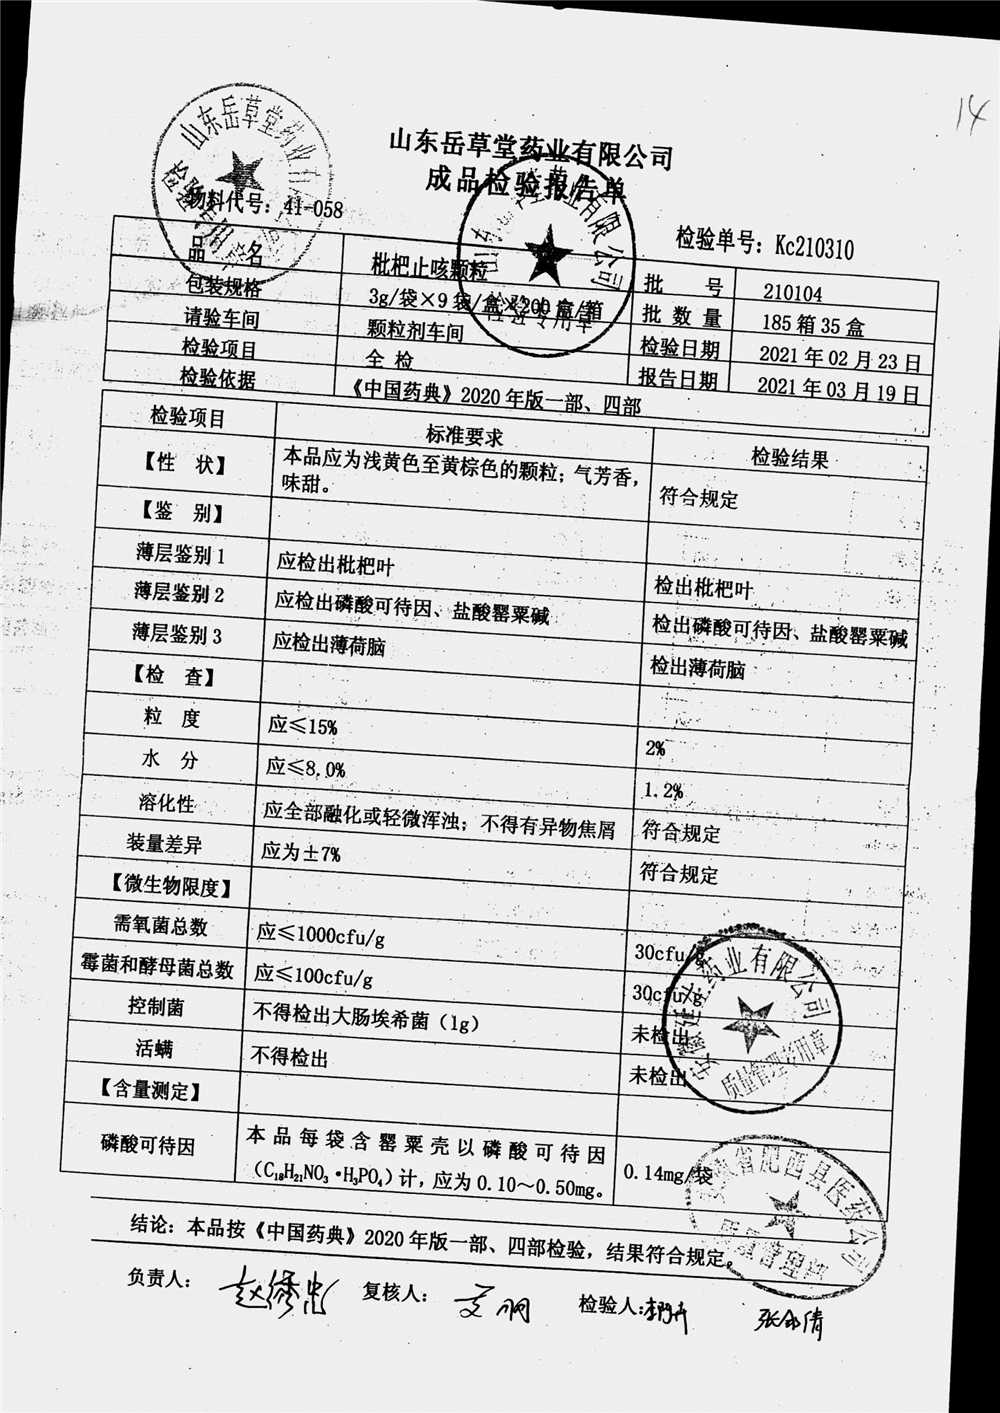 14
山东岳草堂药业有限公司
成品检验报告单
物料代号：41-058
检验单号：Kc210310
品 名 枇杷止咳颗粒 批 号 210104
包装规格 3g/袋×9袋/盒×200盒/箱 批 数 量 185箱35盒
请验车间 颗粒剂车间 检验日期 2021年02月23日
检验项目 全 检 报告日期 2021年03月19日
检验依据 《中国药典》2020年版一部、四部
检验项目 标准要求 检验结果
【性 状】 本品应为浅黄色至黄棕色的颗粒；气芳香，味甜。 符合规定
【鉴 别】
薄层鉴别1 应检出枇杷叶 检出枇杷叶
薄层鉴别2 应检出磷酸可待因、盐酸罂粟碱 检出磷酸可待因、盐酸罂粟碱
薄层鉴别3 应检出薄荷脑 检出薄荷脑
【检 查】
粒 度 应≤15% 2%
水 分 应≤8.0% 1.2%
溶化性 应全部融化或轻微浑浊；不得有异物焦屑 符合规定
装量差异 应为±7% 符合规定
【微生物限度】
需氧菌总数 应≤1000cfu/g 30cfu/g
霉菌和酵母菌总数 应≤100cfu/g 30cfu/g
控制菌 不得检出大肠埃希菌（1g） 未检出
活螨 不得检出 未检出
【含量测定】
磷酸可待因 本品每袋含罂粟壳以磷酸可待因（C₁₈H₂₁NO₃·H₃PO₄）计，应为0.10～0.50mg。 0.14mg/袋
结论：本品按《中国药典》2020年版一部、四部检验，结果符合规定。
负责人： 复核人： 检验人：
山东岳草堂药业有
药业有限公司
质量管理专用章
省肥西县医药公司
质量管理